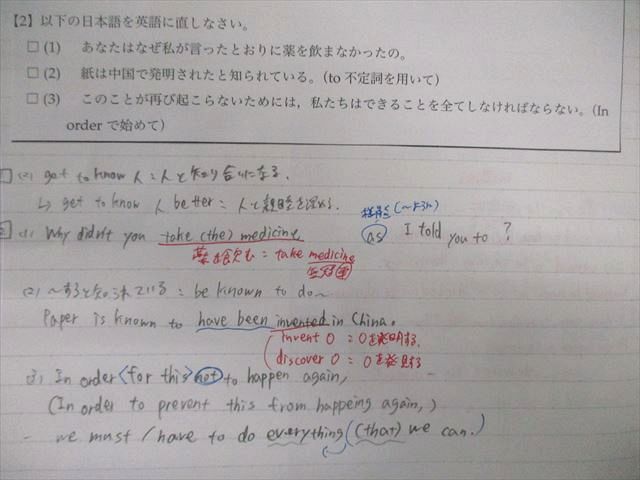 【2】以下の日本語を英語に直しなさい。
□ (1) あなたはなぜ私が言ったとおりに薬を飲まなかったの。
□ (2) 紙は中国で発明されたと知られている。(to 不定詞を用いて)
□ (3) このことが再び起こらないためには，私たちはできることを全てしなければならない。(In
order で始めて)
(2) get to know 人 : 人と知り合いになる.
↳ get to know 人 better : 人と親睦を深める.
2 (1) Why didn't you take (the) medicine as I told you to ?
(〜ように)
薬を飲む = take medicine
(2) 〜すると知られている = be known to do〜
Paper is known to have been invented in China.
invent O = Oを発明する.
discover O = Oを発見する
(3) In order <for this> not to happen again,
(In order to prevent this from happeing again,)
we must / have to do everything ((that) we can.)